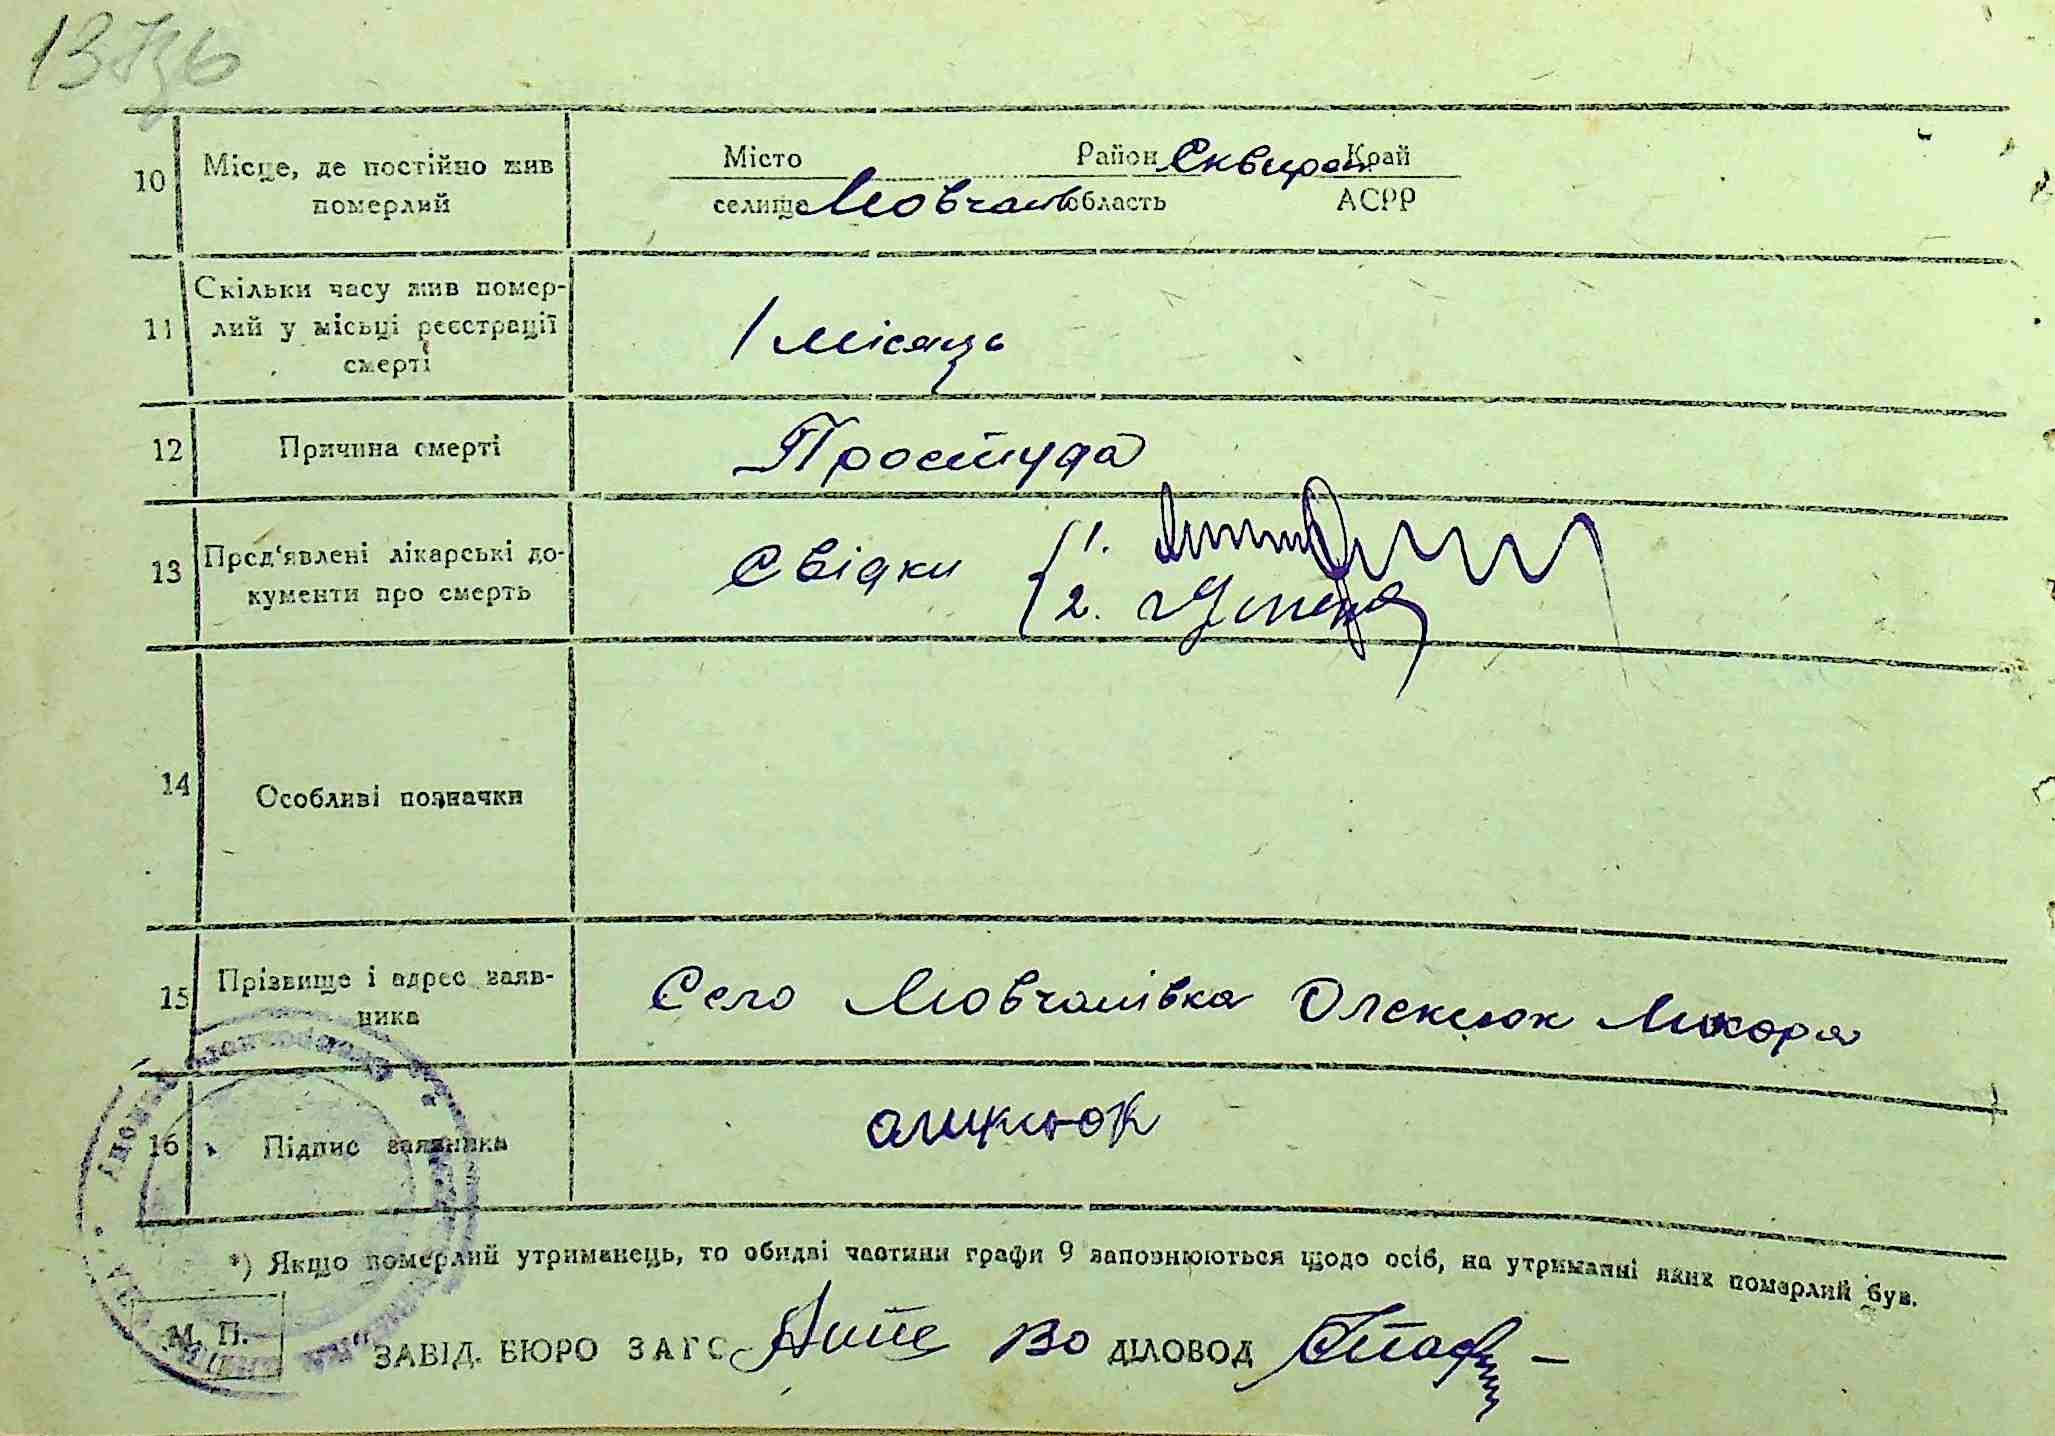 10 Місце, де постійно жив померлий
Місто Район Сквирск Край
селища Мовчан область АСРР
11 Скільки часу жив померлий у місьці реєстрації смерті
1 місяць
12 Причина смерті
Простуда
13 Пред'явлені лікарські документи про смерть
Свідки 1.
2.
14 Особливі позначки
15 Прізвище і адрес заявника
Село Мовчанівка Олексюк Микора
16 Підпис заявника
*) Якщо померлий утриманець, то обидві частини графи 9 заповнюються щодо осіб, на утриманні яких померлий був.
М. П.
ЗАВІД. БЮРО ЗАГС ДІЛОВОД